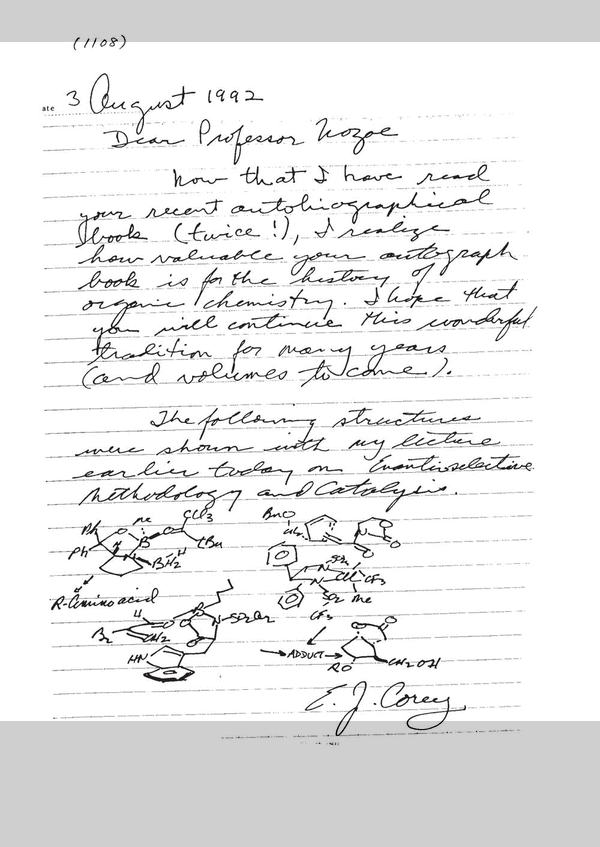 (1108)
ate 3 August 1992
Dear Professor Nozoe
Now that I have read
your recent autobiographical
book (twice!), I realize
how valuable your autograph
book is for the history of
organic chemistry. I hope that
you will continue this wonderful
tradition for many years
(and volumes to come).
The following structures
were shown with my lecture
earlier today on Enantioselective
Methodology and Catalysis.
Ph Ph O Me B O CCl3 tBu N BH2 H
R-Amino acid
BnO O N O O
N Al N CF3 Me
CF3
H O Br CH2 B O N SO2Ar O
HN
ADDUCT
O O RO CH2OH
E. J. Corey